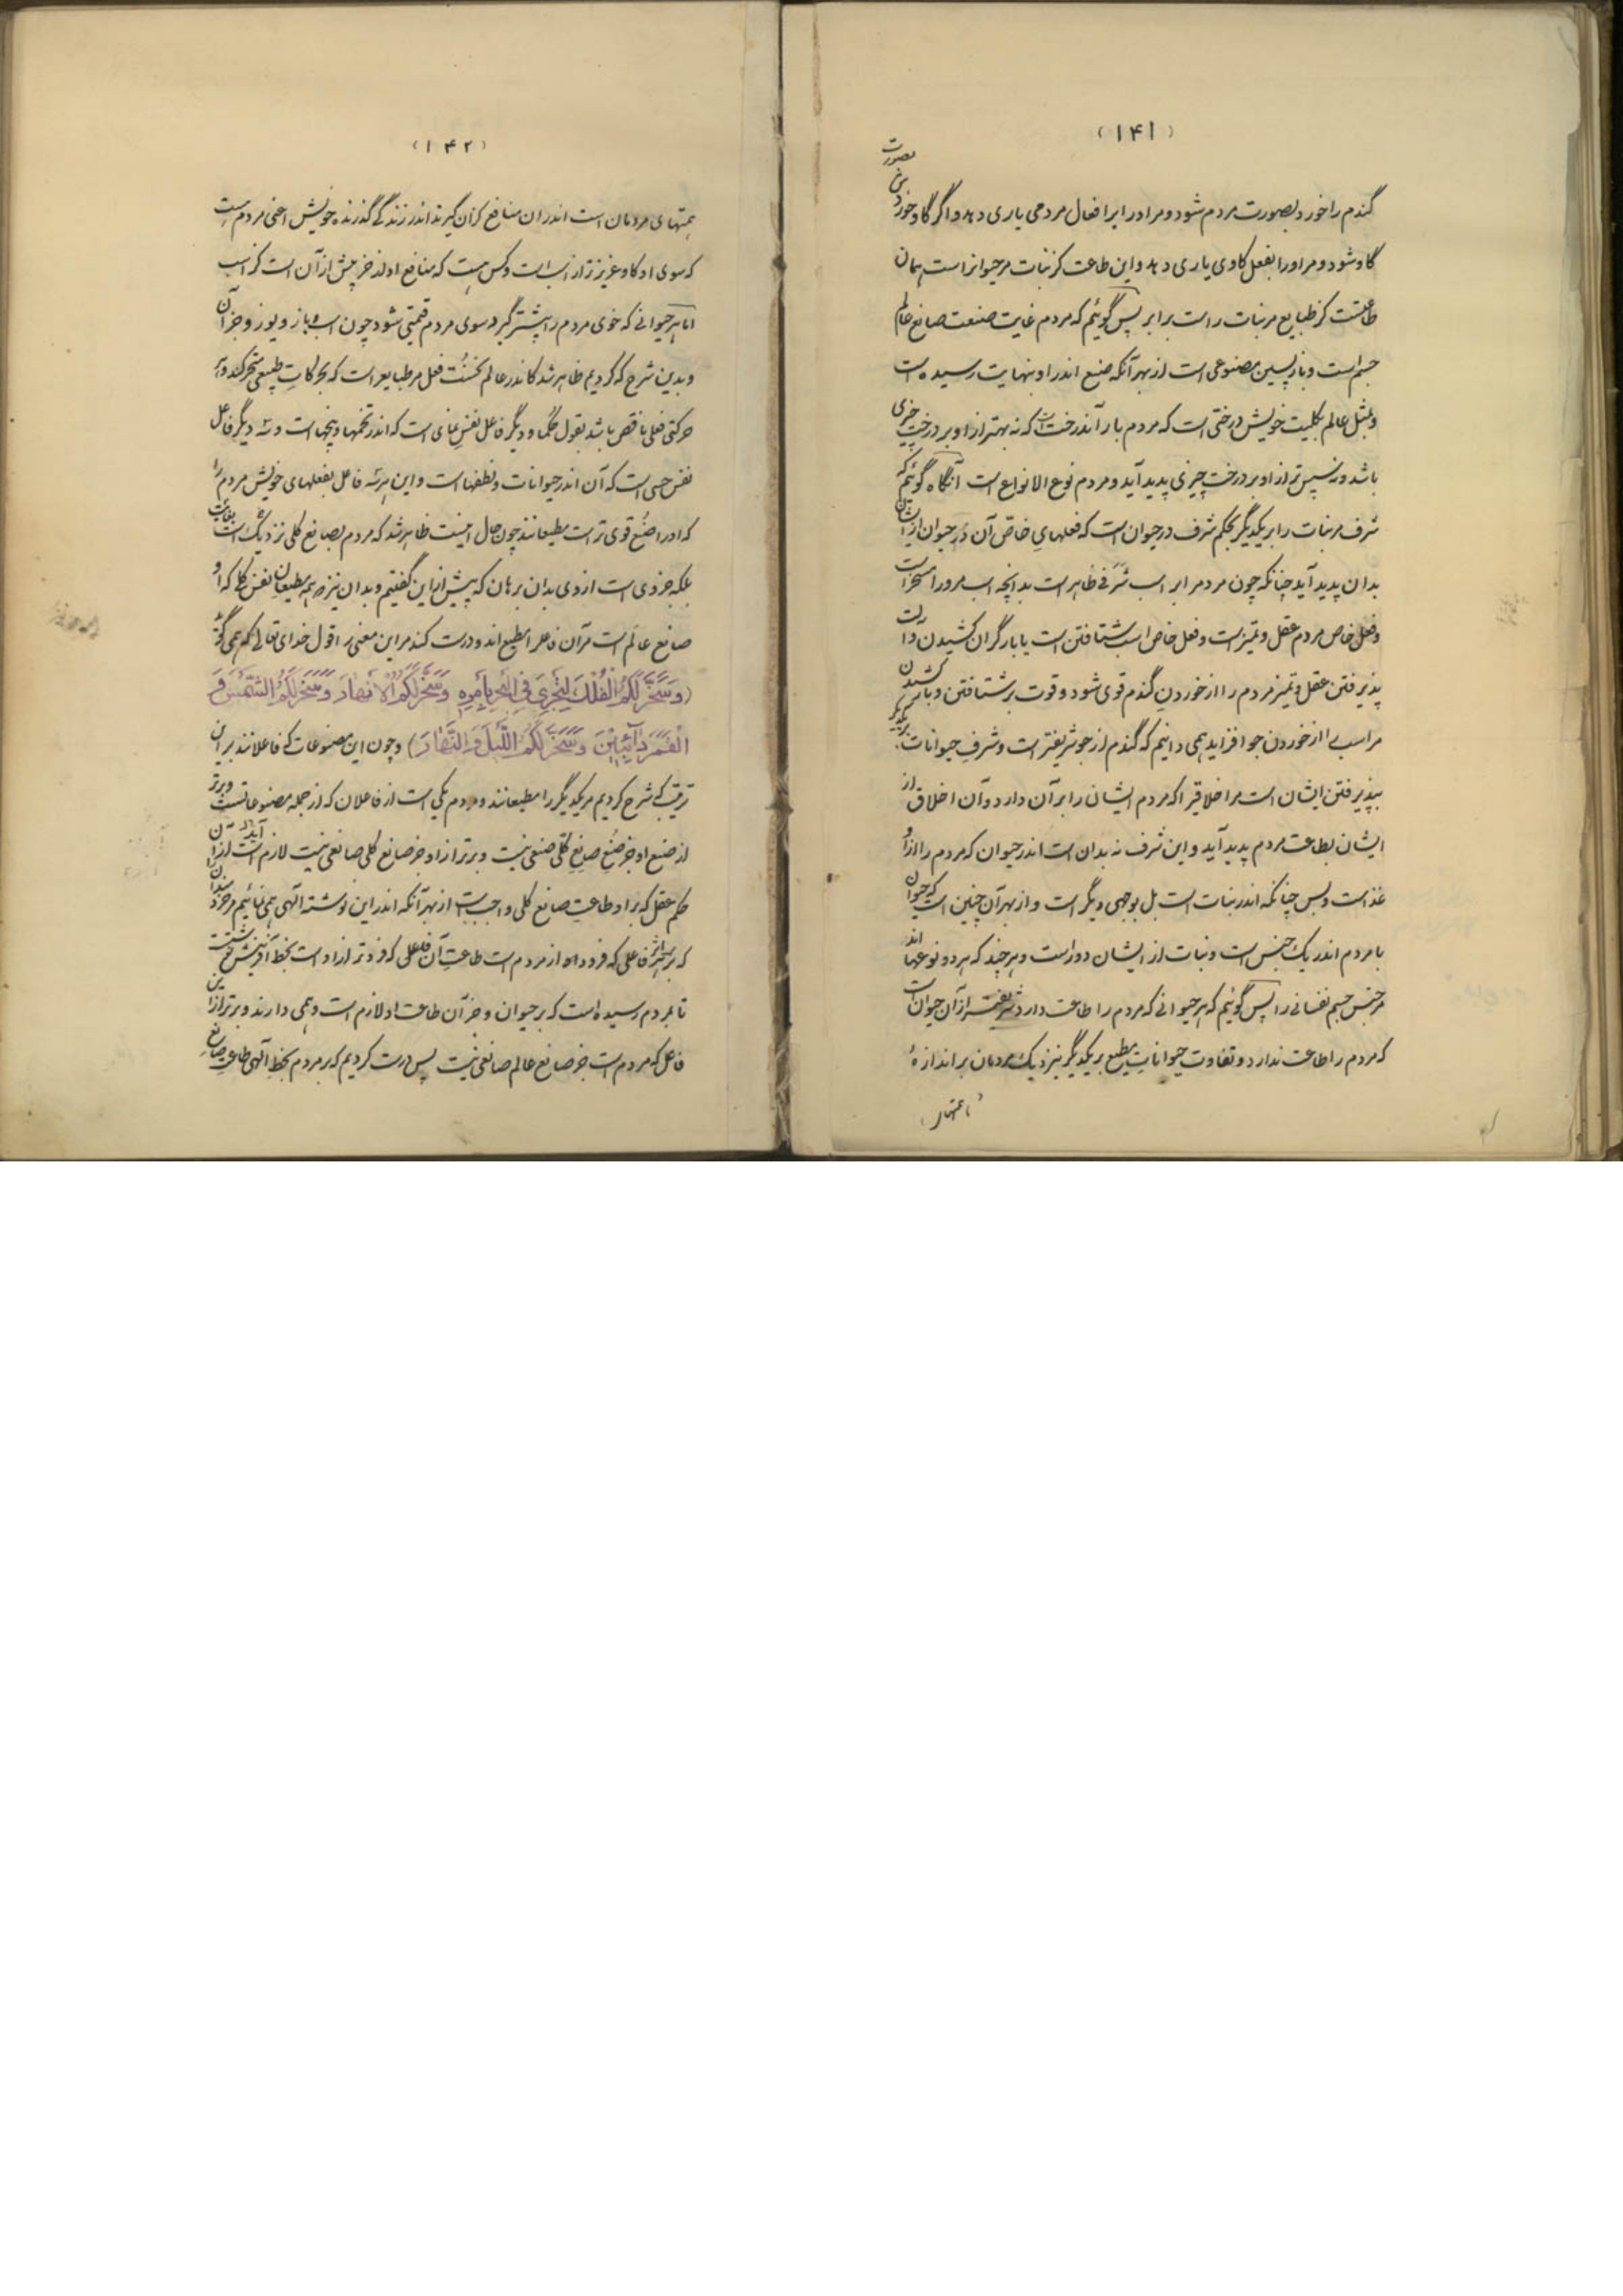 (۱۴۱)
گندم را خورد بصورت مردم شود و مر او را بر افعال مردمی یاری دهد و اگر گاو خورد بصورت
گاو شود و مر او را بفعل گاوی یاری دهد و این طاعت کز نبات مر حیوانراست همان
طاعتست کز طبایع مر نبات راست برابر پس گوئیم که مردم غایت صنعت صانع عالم
جسم است و بازپسین مصنوعی است از بهر آنکه صنع اندر او بنهایت رسیده است
و بمثل عالم بکلیت خویش درختی است که مردم بار آن درخت است که نه بهتر از او بر درخت چیزی
باشد و نه سپس تر از او بر درخت چیزی پدید آید و مردم نوع الانواع است آنگاه گوئیم که
شرف مر نبات را بر یکدیگر بحکم شرف در حیوان است که فعلهای خاص آن در حیوان ازیشان
بدان پدید آید چنانکه چون مردم را بر اسب شرفی ظاهر است بدانچه اسب مرورا مسخر است
و فعل خاص مردم عقل و تمیز است و فعل خاص اسب شتافتن است یا بار گران کشیدن و راست
پذیرفتن عقل و تمیز مردم را از خوردن گندم قوی شود و قوت بر شتافتن و بار کشیدن
مر اسب را از خوردن جو افزاید همی دانیم که گندم از جو شریفتر است و شرف حیوانات بر یکدیگر
بپذیرفتن ایشان است مر اخلاقی را که مردم ایشان را بر آن دارد و آن اخلاق از
ایشان بطاعت مردم پدید آید و این شرف نه بدان است اندر حیوان که مردم را از او
غذاست و بس چنانکه اندر نبات است بل بوجهی دیگر است و از بهر آن چنین است که حیوان
با مردم اندر یک جنس است و نبات از ایشان دور است و هر چند که هر دو نوعها اند
مر جنس جسم نفسانی را پس گوئیم که هر حیوانی که مردم را طاعت دارد شریفتر از آن حیوان است
که مردم را طاعت ندارد و تفاوت حیوانات مطیع بر یکدیگر نیز نزدیک مردمان بر اندازهٔ
(۱۴۲)
همتهای مردمان است اندران منافع کزان گیرند اندر زندگی گذرنده خویش اعنی مردم هست
که سوی او گاو عزیزتر از اسب است و کس هست که منافع او از خر بیش از آن است کز اسب
اما هر حیوانی که خوی مردم را بیشتر گیرد سوی مردم قیمتی شود چون اسب و باز و یوز و جز آن
و بدین شرح که کردیم ظاهر شد کاندر عالم نخست فعل مر طبایع راست که بحرکات طبیعی متحرکند و هر
حرکتی فعلی ناقص باشد بقول حکما و دیگر فاعل نفس نمای است که اندر تخمها و بیخهاست و سه دیگر فاعل
نفس حسی است که آن اندر حیوانات و نطفهاست و این هر سه فاعل بفعلهای خویش مردم را
که او را صنع قوی تر است مطیعانند چون حال اینست ظاهر شد که مردم بصانع کلی نزدیک است بغایت
بلکه جزوی است از وی بدان برهان که پیش از این گفتیم و بدان نیز همه مطیعان نفس کلی که او
صانع عالم است مر آن فاعل را مطیع اند و درست کند مر این معنی را قول خدای تعالی که همی گوید
(وَسَخَّرَ لَكُمُ الْفُلْكَ لِتَجْرِيَ فِي الْبَحْرِ بِأَمْرِهِ وَسَخَّرَ لَكُمُ الْأَنْهَارَ وَسَخَّرَ لَكُمُ الشَّمْسَ وَ
الْقَمَرَ دَائِبَيْنِ وَسَخَّرَ لَكُمُ اللَّيْلَ وَالنَّهَارَ) و چون این مصنوعات که فاعلانند بر این
ترتیب که شرح کردیم مر یکدیگر را مطیعانند و مردم یکی است از فاعلان که از جمله مصنوعاتست و برتر
از صنع او جز صنع صانع کلی صنعی نیست و برتر از او جز صانع کلی صانعی نیست لازم آید از
حکم عقل که بر او طاعت صانع کلی واجب است از بهر آنکه اندر این نوشته الهی همی نیابیم مر خرد
که بر هر فاعلی که فرود از مردم است طاعت آن فاعلی که فرودتر از اوست بخط آفرینش نبشتست
تا بمردم رسیده است که بر حیوان و جز آن طاعت او لازم است و همی دارند و برتر از این
فاعل که مردم است جز صانع عالم صانعی نیست پس درست کردیم که بر مردم بخط الهی طاعت صانع